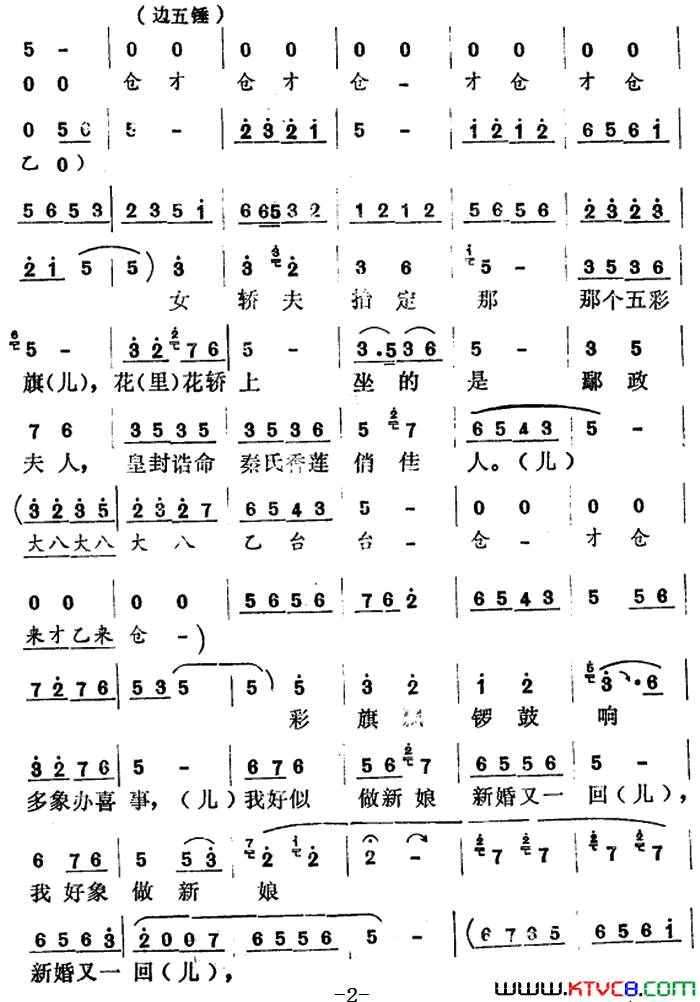 （边五锤）
5 - 0 0 0 0 0 0 0 0 0 0
0 0 仓 才 仓 才 仓 - 才 仓 才 仓
0 5 6 5 - 2 3 2 1 5 - 1 2 1 2 6 5 6 1
乙 0）
5 6 5 3 2 3 5 1 6 6 5 3 2 1 2 1 2 5 6 5 6 2 3 2 3
2 1 5 5） 3 3 3 2 3 6 1 5 - 3 5 3 6
女 轿 夫 抬 定 那 那个五彩
6 5 - 3 2 2 7 6 5 - 3 . 5 3 6 5 - 3 5
旗（儿），花（里）花轿 上 坐 的 是 鄢 政
7 6 3 5 3 5 3 5 3 6 5 2 7 6 5 4 3 5 -
夫 人， 皇封诰命 秦氏香莲 俏 佳 人。（儿）
（3 2 3 5 2 3 2 7 6 5 4 3 5 - 0 0 0 0
大八大八 大 八 乙 台 台 - 仓 - 才 仓
0 0 0 0 5 6 5 6 7 6 2 6 5 4 3 5 5 6
来才乙来 仓 -）
7 2 7 6 5 3 5 5） 5 3 2 1 2 5 3 · 6
彩 旗 锣 鼓 响
3 2 7 6 5 - 6 7 6 5 6 2 7 6 5 5 6 5 -
多象办喜 事，（儿）我好似 做新娘 新婚又一 回（儿），
6 7 6 5 5 3 7 2 1 2 2 - 2 7 2 7 2 7 2 7
我 好象 做 新 娘
6 5 6 3 2 0 0 7 6 5 5 6 5 -（6 7 3 5 6 5 6 1
新婚又一 回（儿），
-2-
www.KTVC8.com